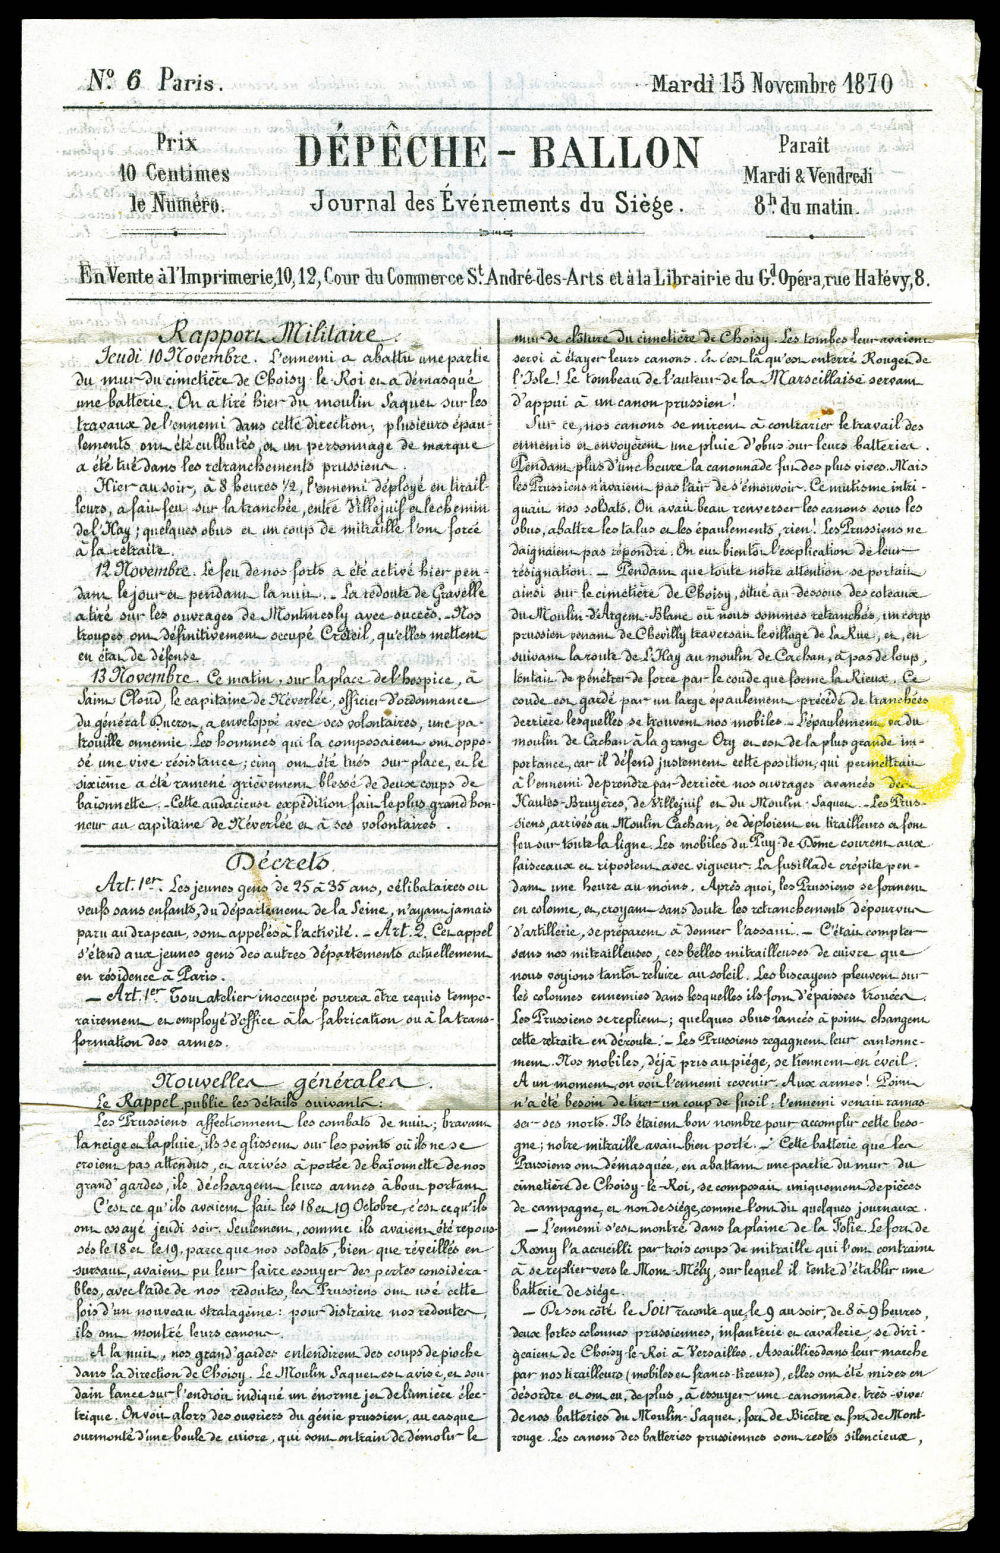 Nº 6 Paris.
Mardi 15 Novembre 1870
Prix
10 Centimes
le Numéro.
DÉPÊCHE - BALLON
Journal des Événements du Siège.
Paraît
Mardi & Vendredi
8h du matin.
En Vente à l'Imprimerie, 10, 12, Cour du Commerce St André-des-Arts et à la Librairie du Gd Opéra, rue Halévy, 8.
Rapport Militaire.
Jeudi 10 Novembre. L'ennemi a abattu une partie
du mur du cimetière de Choisy-le-Roi et a démasqué
une batterie. On a tiré hier du moulin Saquet sur les
travaux de l'ennemi dans cette direction, plusieurs épau-
lements ont été culbutés, et un personnage de marque
a été tué dans les retranchements prussiens.
Hier au soir, à 8 heures 1/2, l'ennemi déployé en tirail-
leurs, a fait feu sur la tranchée, entre Villejuif et le chemin
de l'Hay; quelques obus et un coup de mitraille l'ont forcé
à la retraite.
12 Novembre. Le feu de nos forts a été activé hier pen-
dant le jour et pendant la nuit. – La redoute de Gravelle
a tiré sur les ouvrages de Montmesly avec succès. – Nos
troupes ont définitivement occupé Créteil, qu'elles mettent
en état de défense
13 Novembre. Ce matin, sur la place de l'hospice, à
Saint Cloud, le capitaine de Néverlée, officier d'ordonnance
du général Ducrot, a enveloppé avec ses volontaires, une pa-
trouille ennemie. Les hommes qui la composaient ont oppo-
sé une vive résistance; cinq ont été tués sur place, et le
sixième a été ramené grièvement blessé de deux coups de
baïonnette. – Cette audacieuse expédition fait le plus grand hon-
neur au capitaine de Néverlée et à ses volontaires.
Décrets
Art. 1er. Les jeunes gens de 25 à 35 ans, célibataires ou
veufs sans enfants, du département de la Seine, n'ayant jamais
paru au drapeau, sont appelés à l'activité. – Art. 2. Cet appel
s'étend aux jeunes gens des autres départements actuellement
en résidence à Paris.
– Art. 1er Tout atelier inoccupé pourra être requis tempo-
rairement et employé d'office à la fabrication ou à la trans-
formation des armes.
Nouvelles générales.
Le Rappel publie les détails suivants:
Les Prussiens affectionnent les combats de nuit; bravant
la neige et la pluie, ils se glissent sur les points où ils ne se
croient pas attendus, et arrivés à portée de baïonnette de nos
grand'gardes, ils déchargent leurs armes à bout portant.
C'est ce qu'ils avaient fait les 18 et 19 Octobre, c'est ce qu'ils
ont essayé jeudi soir. Seulement, comme ils avaient été repous-
sés le 18 et le 19, parce que nos soldats, bien que réveillés en
sursaut, avaient pu leur faire essuyer des pertes considéra-
bles, avec l'aide de nos redoutes, les Prussiens ont usé cette
fois d'un nouveau stratagème: pour distraire nos redoutes,
ils ont montré leurs canons.
A la nuit, nos grand'gardes entendirent des coups de pioche
dans la direction de Choisy. Le Moulin Saquet est avisé, et sou-
dain lance sur l'endroit indiqué un énorme jet de lumière élec-
trique. On voit alors des ouvriers du génie prussien, au casque
surmonté d'une boule de cuivre, qui sont en train de démolir le
mur de clôture du cimetière de Choisy. Les tombes leur avaient
servi à étayer leurs canons. Et c'est là qu'est enterré Rouget de
l'Isle! Le tombeau de l'auteur de la Marseillaise servant
d'appui à un canon prussien!
Sur ce, nos canons se mirent à contrarier le travail des
ennemis et envoyèrent une pluie d'obus sur leurs batteries.
Pendant plus d'une heure la canonnade fut des plus vives. Mais
les Prussiens n'avaient pas l'air de s'émouvoir. Ce mutisme intri-
guait nos soldats. On avait beau renverser les canons sous les
obus, abattre les talus et les épaulements, rien! Les Prussiens ne
daignaient pas répondre. On eut bientôt l'explication de leur
résignation. – Pendant que toute notre attention se portait
ainsi sur le cimetière de Choisy, situé au dessous des coteaux
du Moulin-d'Argent-Blanc où nous sommes retranchés, un corps
prussien venant de Chevilly traversait le village de La Rue, et, en
suivant la route de L'Hay au moulin de Cachan, à pas de loup,
tentait de pénétrer de force par le coude que forme la Bièvre. Ce
coude est gardé par un large épaulement précédé de tranchées
derrière lesquelles se trouvent nos mobiles. – L'épaulement va du
moulin de Cachan à la grange Ory et est de la plus grande im-
portance, car il défend justement cette position, qui permettrait
à l'ennemi de prendre par-derrière nos ouvrages avancés des
Hautes-Bruyères, de Villejuif et du Moulin-Saquet. – Les Prus-
siens, arrivés au Moulin Cachan, se déploient en tirailleurs et font
feu sur toute la ligne. Les mobiles du Puy-de-Dôme courent aux
faisceaux et ripostent avec vigueur. La fusillade crépite pen-
dant une heure au moins. Après quoi, les Prussiens se forment
en colonne, et, croyant sans doute les retranchements dépourvus
d'artillerie, se préparent à donner l'assaut. – C'était compter
sans nos mitrailleuses, ces belles mitrailleuses de cuivre que
nous voyions tantôt reluire au soleil. Les biscayens pleuvent sur
les colonnes ennemies dans lesquelles ils font d'épaisses trouées.
Les Prussiens se replient; quelques obus lancés à point changent
cette retraite en déroute. – Les Prussiens regagnent leur cantonne-
ment. Nos mobiles, déjà pris au piège, se tiennent en éveil.
A un moment, on voit l'ennemi revenir. Aux armes! Point
n'a été besoin de tirer un coup de fusil; l'ennemi venait ramas-
ser ses morts. Ils étaient bon nombre pour accomplir cette beso-
gne; notre mitraille avait bien porté. – Cette batterie que les
Prussiens ont démasquée, en abattant une partie du mur du
cimetière de Choisy-le-Roi, se composait uniquement de pièces
de campagne, et non de siége, comme l'ont dit quelques journaux.
– L'ennemi s'est montré dans la plaine de la Folie. Le fort de
Rosny l'a accueilli par trois coups de mitraille qui l'ont contraint
à se replier vers le Mont-Mély, sur lequel il tente d'établir une
batterie de siége.
– De son côté le Soir raconte que, le 9 au soir, de 8 à 9 heures,
deux fortes colonnes prussiennes, infanterie et cavalerie, se diri-
geaient de Choisy-le-Roi à Versailles. Assaillies dans leur marche
par nos tirailleurs (mobiles et francs-tireurs), elles ont été mises en
désordre et ont eu, de plus, à essuyer une canonnade très-vive
de nos batteries du Moulin-Saquet, fort de Bicêtre et fort de Mont-
rouge. Les canons des batteries prussiennes sont restés silencieux,